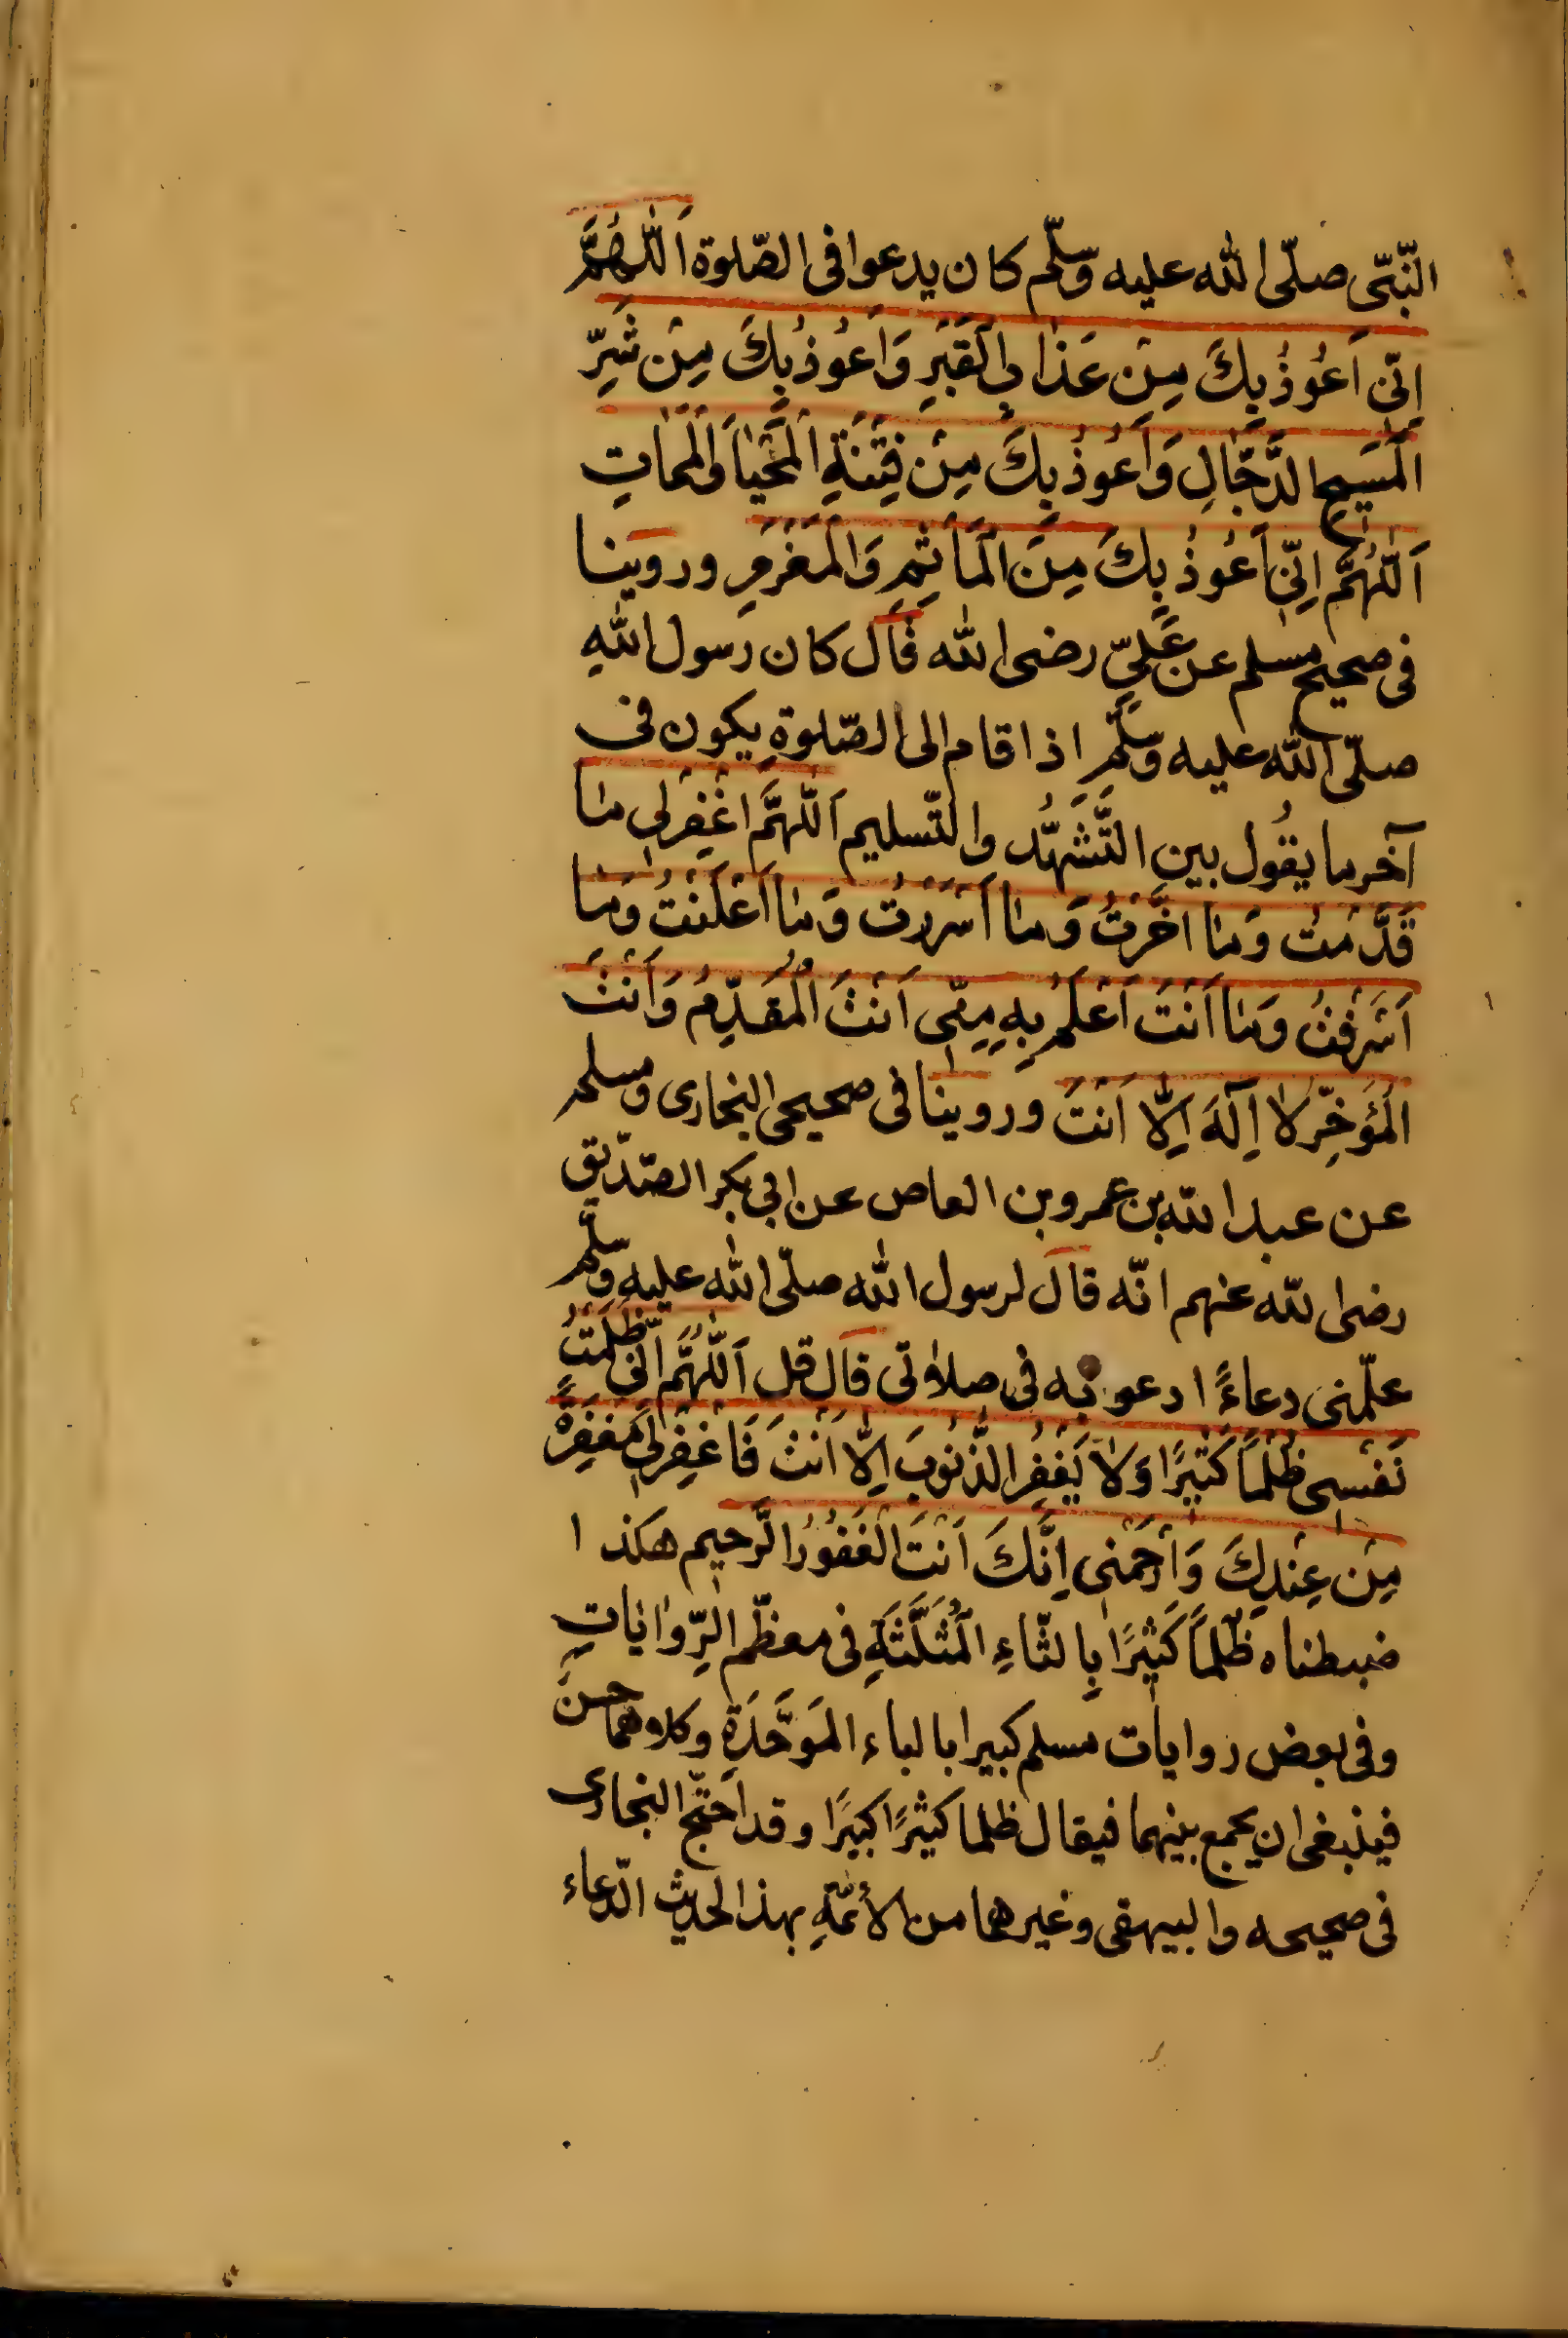 النّبىّ صلّى الله عليه وسلّم كان يدعوا فى الصّلوة اَللّٰهُمَّ
اِنّى اَعُوذُ بِكَ مِنْ عَذَابِ الْقَبْرِ وَاَعُوذُ بِكَ مِنْ شَرِّ
الْمَسِيحِ الدَّجَّالِ وَاَعُوذُ بِكَ مِنْ فِتْنَةِ الْمَحْيَا وَالْمَمَاتِ
اَللّٰهُمَّ اِنّى اَعُوذُ بِكَ مِنَ الْمَأْثَمِ وَالْمَغْرَمِ وروينا
فى صحيح مسلم عن عَلِىٍّ رضى الله قال كان رسول اللهِ
صلّى الله عليه وسلّم اذا قام الى الصّلوةِ يكون فى
آخر ما يقُول بين التَّشَهُّد والتّسليم اَللّٰهُمَّ اغْفِرْ لِى مَا
قَدَّمْتُ وَمَا اخَّرْتُ وَمَا اَسْرَرْتُ وَمَا اَعْلَنْتُ وَمَا
اَسْرَفْتُ وَمَا اَنْتَ اَعْلَمُ بِهِ مِنّى اَنْتَ الْمُقَدِّمُ وَاَنْتَ
الْمُؤَخِّرُ لا اِلٰهَ اِلّا اَنْتَ وروينا فى صحيحى البخارى ومسلم
عن عبد الله بن عمرو بن العاص عن ابى بكر الصّدّيق
رضى الله عنهم انّه قال لرسول الله صلّى الله عليه وسلّم
علّمنى دعاءً ادعو به فى صلاتى قال قل اَللّٰهُمَّ اِنّى ظَلَمْتُ
نَفْسِى ظُلْمًا كَثِيرًا وَلَا يَغْفِرُ الذُّنُوبَ اِلّا اَنْتَ فَاغْفِرْ لِى مَغْفِرَةً
مِنْ عِنْدِكَ وَارْحَمْنى اِنَّكَ اَنْتَ الْغَفُورُ الرَّحيم هكذا
ضبطناه ظُلْمًا كَثِيرًا بِالثّاءِ الْمُثَلَّثَةِ فى معظّم الرِّوايَاتِ
وفى بعض روايات مسلم كبيرا بالباء الموَحَّدَةِ وكلاهما حسنٌ
فينبغى ان يجمع بينهما فيقال ظلما كثيرًا كبيرًا وقد احتجّ البخارى
فى صحيحه والبيهقى وغيرهما من الأئمّةِ بهذا الحديث الدّعاء